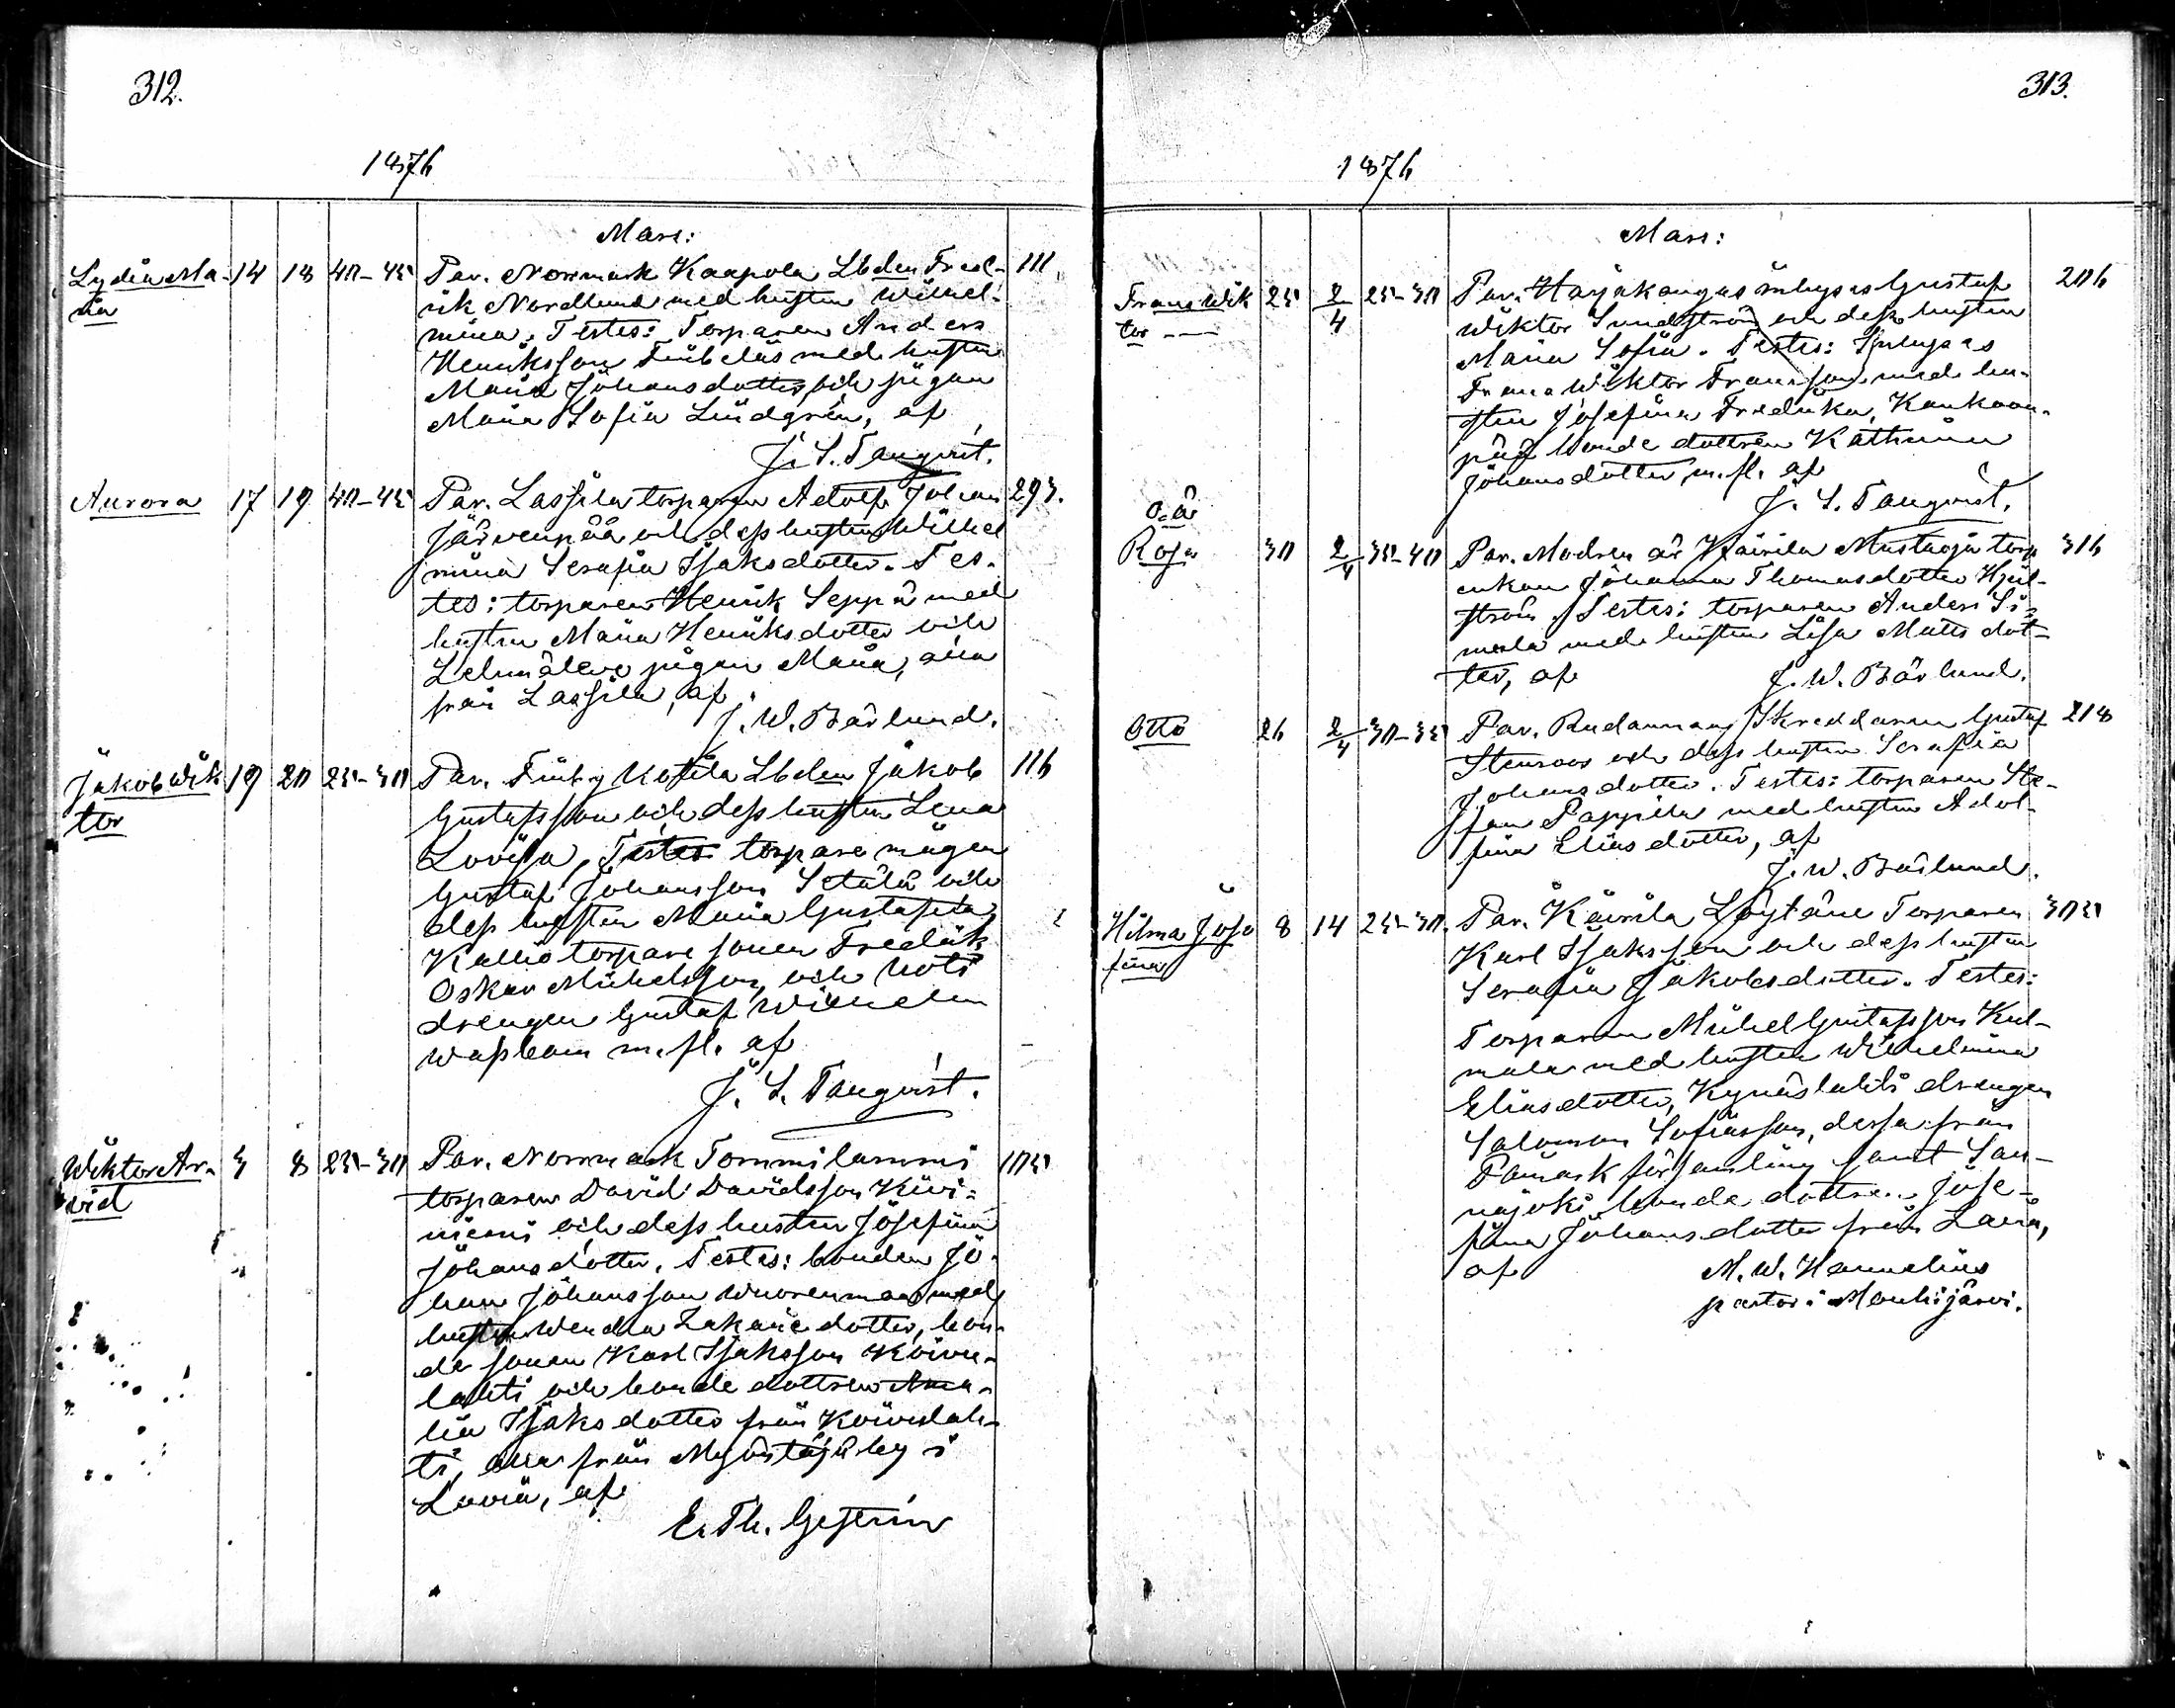 312.
1876
Mars:
Lydia Ma- 14 18 40-45 Par. Norrmark Kaapola Lbden Fred- 111.
ria rik Nordlund med hustru Wilhel-
mina. Testes: Torparen Anders
Henriksson med hustru
Maria Johansdotter och pigan
Maria Sofia Lindgrén, af
J. S. Tanqvist.
Aurora 17 19 40-45 Par. Lassila torparen Adolf Johan 293.
Järvenpää och dess hustru Wilhel
mina Serafia Isaksdotter. Tes-
tes: torparen Henrik Seppä med
hustru Maria Henriksdotter och
pigan Maria, alla
från Lassila, af
J. W. Bärlund.
Jakob Wik 19 20 25-30 Par. Finby Kotila Lbden Jakob 116
tor Gustafsson och dess hustru Lena
Lovisa, Testes torpare mågen
Gustaf Johansson Setälä och
dess hustru Maria Gustafsdr,
Kallio torpare sonen Fredrik
Oskar Mickelsson, och
drengen Gustaf Wilhelm
m. fl. af
J. S. Tanqvist.
Wiktor Ar- 3 8 25-30 Par. Norrmark Tommilammi 105
vid torparen David Davidsson Kivi-
niemi och dess hustru Josefina
Johansdotter. Testes: bonden Jo-
han Johansson Wuorenmaa med
hustru Wendla Zakariedotter, bon-
de sonen Karl Isaksson Koivu-
lahti och bonde dottren Ama-
lia Isaksdotter från Koivulah-
ti, alla från by i
Lavia, af
E. Th. Geserin
313.
1876
Mars:
Frans Wik 25 2/4 25-30 Par. Harjakangas inhyses Gustaf 206
tor Wiktor Sundström och dess hustru
Maria Sofia. Testes: Inhyses
Frans Wiktor Fransson med hu-
stru Josefina Fredrika, Kankaan-
pää bonde dottren Kathrina
Johansdotter m. fl. af
J. S. Tanqvist.
o. ä
Rosa 30 2/4 35-40 Par. Modren är Kairila Mustaoja torp 316
enkan Johanna Thomasdotter Hjel-
ström. Testes: torparen Anders
med hustru Lisa Mattsdot-
ter, af J. W. Bärlund.
Otto 26 2/4 30-35 Par. Rudanmaa Skreddaren Gustaf 218
Stenroos och dess hustru Serafia
Johansdotter. Testes: torparen Ste-
fan Pappila med hustru Adol-
fina Eliasdotter, af
J. W. Bärlund.
Hilma Jose 8 14 25-30. Par. Kairila Löytäne Torparen 305
fina Karl Isaksson och dess hustru
Serafia Jakobsdotter. Testes:
Torparen Mickel Gustafsson Kul-
mala med hustru Wilhelmina
Eliasdotter, Kynäslahti drengen
Salomon Sofiasson, dessa från
Påmark församling samt San-
najoki bonde dottren Jose-
fina Johansdotter från Lavia,
af M. W. Hannelius
pastor i Mouhijärvi.